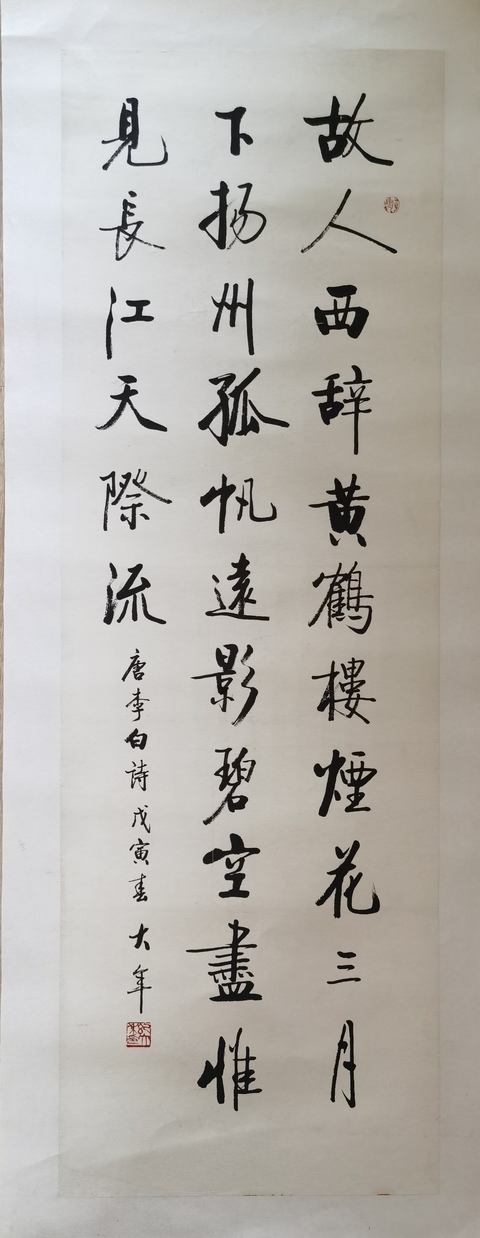 故人西辞黄鶴樓煙花三月
下扬州孤帆遠影碧空盡惟
見長江天際流
唐李白詩戊寅春 大年